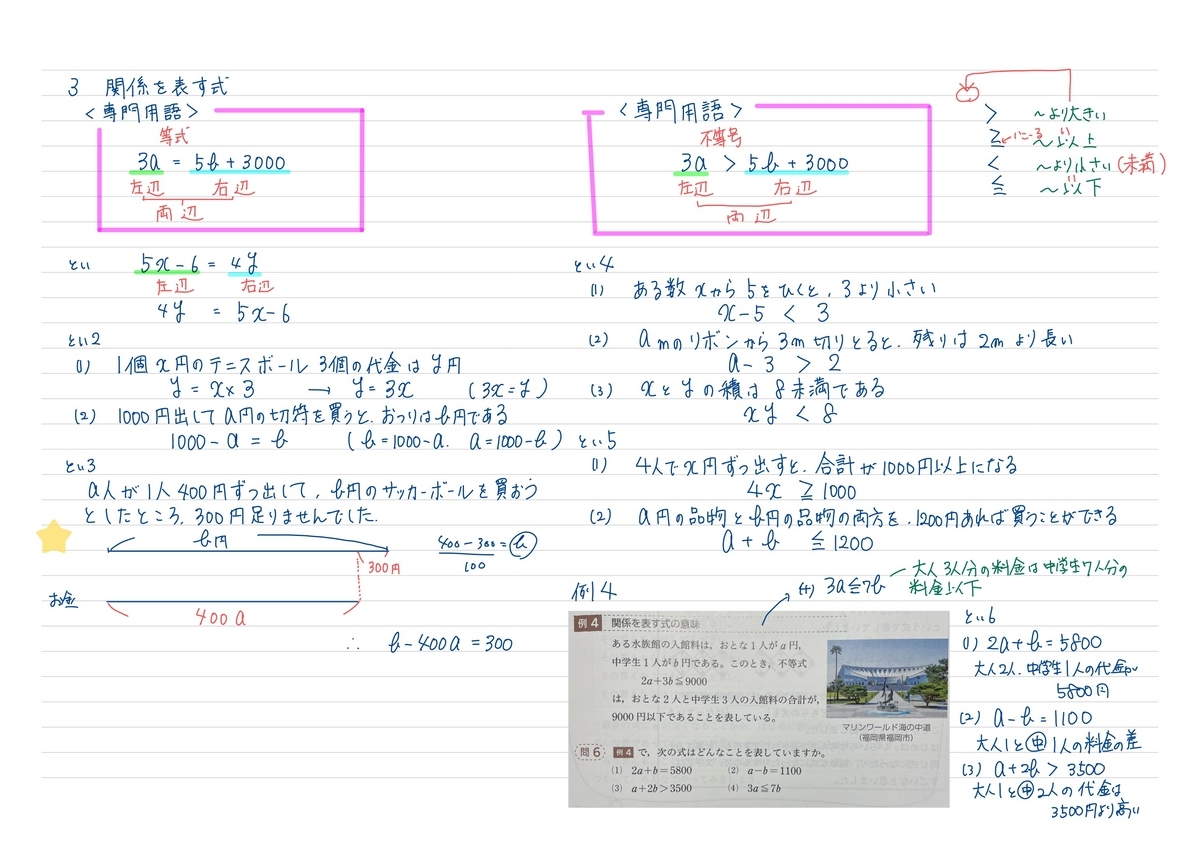 3 関係を表す式
<専門用語>
等式
3a = 5b + 3000
左辺 右辺
両辺
とい 5x-6 = 4y
左辺 右辺
4y = 5x-6
とい2
(1) 1個x円のテニスボール3個の代金はy円
y = x×3 → y=3x (3x=y)
(2) 1000円出してa円の切符を買うと、おつりはb円である
1000-a = b (b=1000-a. a=1000-b)
とい3
a人が1人400円ずつ出して、b円のサッカーボールを買おう
としたところ、300円足りませんでした.
b円
300円
お金
400a
400-300=b
100
∴ b-400a=300
<専門用語>
不等号
3a > 5b + 3000
左辺 右辺
両辺
> ~より大きい
≧ ~以上
イコール
< ~より小さい(未満)
≦ ~以下
とい4
(1) ある数xから5をひくと、3より小さい
x-5 < 3
(2) amのリボンから3m切りとると、残りは2mより長い
a-3 > 2
(3) xとyの積は8未満である
xy < 8
とい5
(1) 4人でx円ずつ出すと、合計が1000円以上になる
4x ≧ 1000
(2) a円の品物とb円の品物の両方を、1200円あれば買うことができる
a + b ≦ 1200
例4
(4) 3a≦7b
大人3人分の料金は中学生7人分の
料金以下
例4 関係を表す式の意味
ある水族館の入館料は、おとな1人がa円,
中学生1人がb円である。このとき、不等式
2a+3b≦9000
は、おとな2人と中学生3人の入館料の合計が,
9000円以下であることを表している。
マリンワールド海の中道
(福岡県福岡市)
問6 例4で、次の式はどんなことを表していますか。
(1) 2a+b=5800 (2) a-b=1100
(3) a+2b>3500 (4) 3a≦7b
とい6
(1) 2a+b=5800
大人2人、中学生1人の代金が
5800円
(2) a-b=1100
大人1と中1人の料金の差
(3) a+2b > 3500
大人1と中2人の代金は
3500円より高い